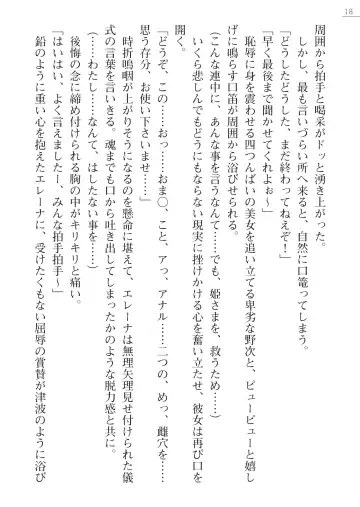 18
周囲から拍手と喝采がドッと湧き上がった。
しかし、最も言いづらい所へ来ると、自然に口籠ってしまう。
「どうしたどうした、まだ終わってねえぞ！」
「早く最後まで聞かせてくれよぉ～」
恥辱に身を震わせる四つんばいの美女を追い立てる卑劣な野次と、ピューピューと嬉し
げに鳴らす口笛が周囲から浴びせられる。
（こんな連中に、あんな事を言うなんて……でも、姫さまを、救うため……）
いくら悲しんでもどうにもならない現実に挫けかける心を奮い立たせ、彼女は再び口を
開く。
「どうぞ、この……おっ……おま〇、こと、アっ、アナル……二つの、めっ、雌穴を……
思う存分、お使い下さいませ……」
時折嗚咽が上がりそうになるのを懸命に堪えて、エレーナは無理矢理見せ付けられた儀
式の言葉を言いきる。魂までも口から吐き出してしまったかのような脱力感と共に。
（……わたし……なんて、はしたない事を……）
後悔の念に締め付けられる胸の中がキリキリと痛い。
「はいはい、よく言えましたー、みんな拍手拍手～」
鉛のように重い心を抱えたエレーナに、受けたくもない屈辱の賞賛が津波のように浴び